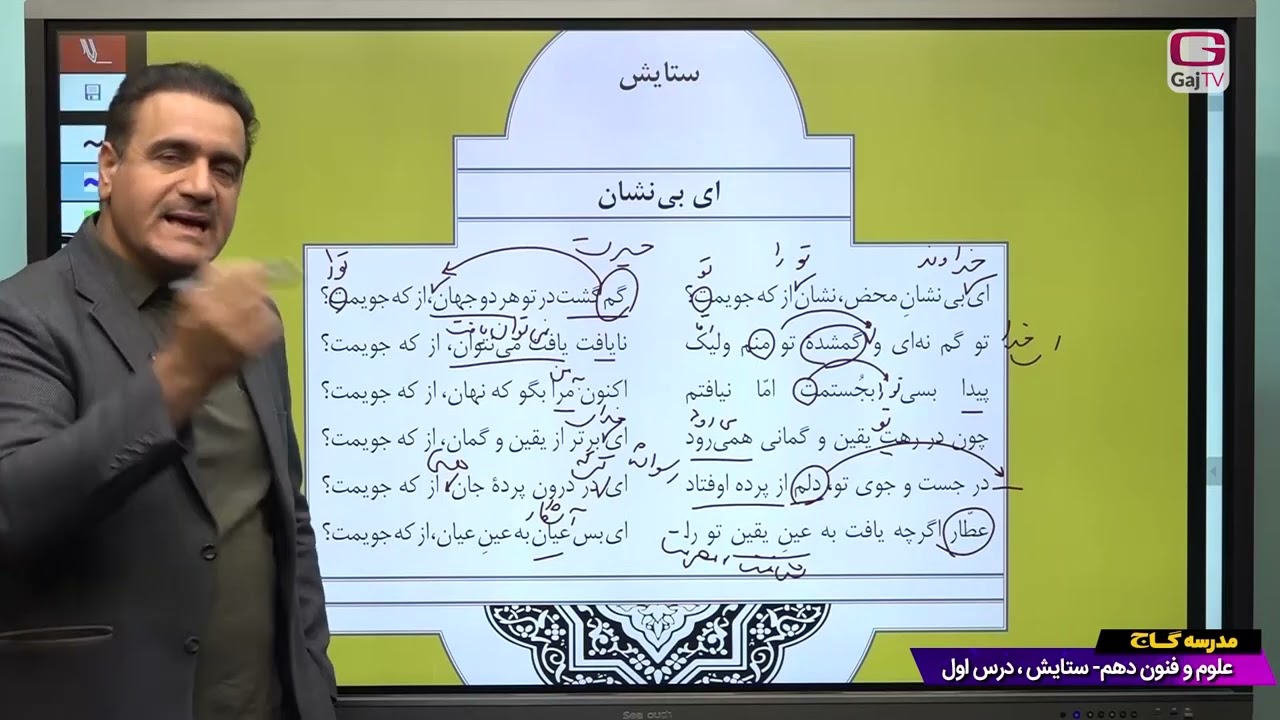 GajTV
ستایش
ای بی‌نشان
خداوند
تو را
تو
حیرت
تو را
ای بی نشانِ محض، نشان از که جویمت؟
گم گشت در تو هر دو جهان، از که جویمت؟
تو گم نه‌ای و گمشدهٔ تو منم ولیک
نایافت یافت می‌نتوان، از که جویمت؟
نمی‌توان یافت
پیدا بسی بجُستمت امّا نیافتم
اکنون مرا بگو که نهان، از که جویمت؟
تو
می رود
چون در رهت یقین و گمانی همی‌رود
ای برتر از یقین و گمان، از که جویمت؟
در جست و جوی تو، دلم از پرده اوفتاد
ای در درون پردهٔ جان، از که جویمت؟
آشکار
عطّار اگرچه یافت به عینِ یقین تو را
ای بس عیان به عینِ عیان، از که جویمت؟
مدرسه گاج
علوم و فنون دهم- ستایش ، درس اول